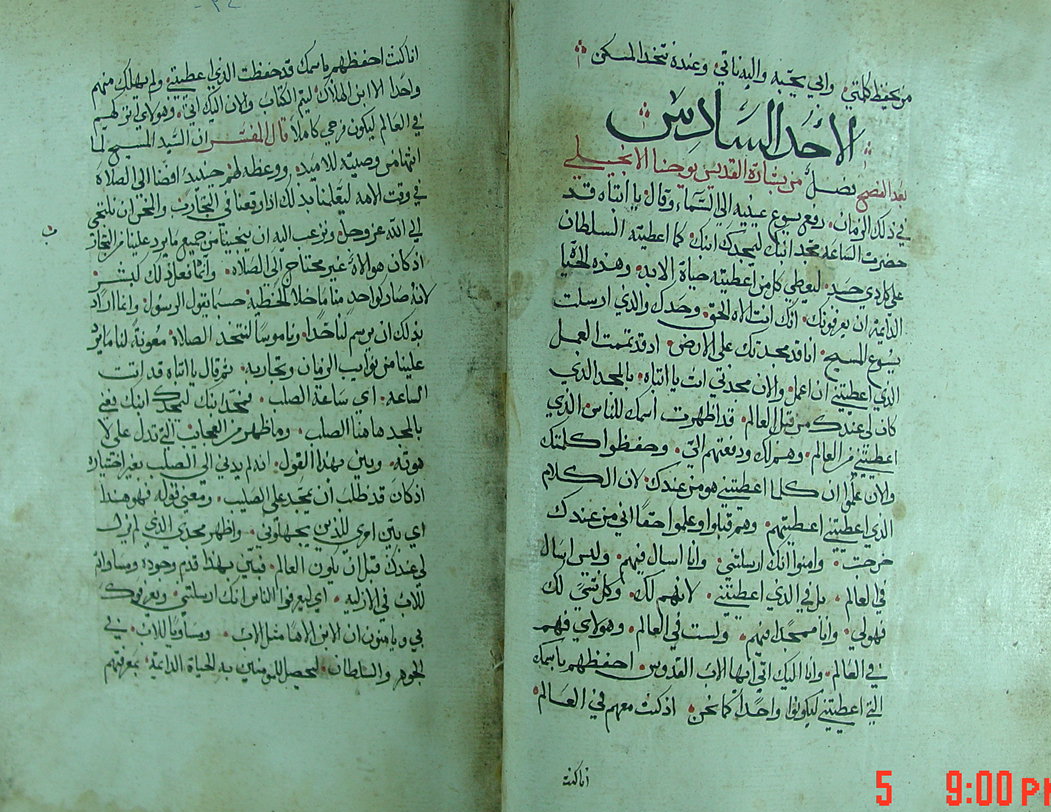 من يحفظ كلمتي وابي يحبه واليه ناتي وعنده نتخد المسكن
الاحد السادس
بعد الفصح فصل من بشارة القديس يوحنا الانجيلي
في ذلك الزمان رفع يسوع عينيه الي السماء وقال يا ابتاه قد
حضرت الساعة مجد ابنك ليمجدك ابنك كما اعطيته السلطان
علي كل دي جسد ليعطي كل من اعطيته حياة الابد وهذه الحياة
الدايمة ان يعرفونك انك انت الاه الحق وحدك والذي ارسلت
يسوع المسيح انا قد مجدتك علي الارض اذ قد تممت العمل
الذي اعطيتني ان اعمل والان مجدني انت يا ابتاه بالمجد الذي
كان لي عندك من قبل العالم قد اظهرت اسمك للناس الذي
اعطيتني من العالم وهم لك ودفعتهم الي وحفظوا كلمتك
والان علموا ان كلما اعطيتني هو من عندك لان الكلام
الذي اعطيتني اعطيتهم وهم قبلوا وعلموا حقا اني من عندك
خرجت وامنوا انك ارسلتني وانا اسال فيهم وليس اسال
في العالم بل في الذي اعطيتني لانهم لك وكل شي لك
فهو لي وانا ممجدا فيهم ولست في العالم وهولاي فهم
في العالم وانا اليك اتي ايها الاب القدوس احفظهم باسمك
التي اعطيتني ليكونوا واحدا كما نحن اذ كنت معهم في العالم
انا كنت
٣٤
انا كنت احفظهم باسمك قد حفظت الذي اعطيتني ولم يهلك منهم
واحدا الا ابن الهلاك ليتم الكتاب والان اليك اتي وهولاي اتوكلهم
في العالم ليكون فرحي كاملا قال المفسر ان السيد المسيح لما
انتها من وصيته للاميده ووعظه لهم حينيذ افضا الي الصلاة
في وقت الالامه ليعلمنا بذلك اذا وقعنا في التجارب والحزن نلتجي
الي الله عز وجل ونرغب اليه ان ينجينا من جميع ما يرد علينا من التجارب
اذ كان هو الاه غير محتاج الي الصلاة وانما فعل ذلك لبشر
لانه صار كواحد منا ما خلا الخطية حسبما يقول الرسول وانما اراد
بذلك ان يرسم لنا حدا وناموسا لنتخد الصلاة معونة لنا مما يرد
علينا من نوايب الزمان وتجاربه ثم قال يا ابتاه قد اتت
الساعة اي ساعة الصلب فمجد ابنك ليمجدك ابنك يعني
بالمجد هاهنا الصلب وما ظهر من العجايب التي تدل علي لا
هوته وبين بهذا القول انه لم يدني الي الصلب بغير اختياره
اذ كان قد طلب ان يمجد علي الصليب ومعني قوله فهو هذا
اي بين امري للذين يجهلوني واظهر مجدي الذي لم يزل
لي عندك قبل ان يكون العالم فبين بهذا قدم وجوده ومساواته
للاب في الازلية اي ليعرفوا الناس انك ارسلتني ويعرفوك
بي ويامنون ان الابن الاها مثل الاب ومساويا للاب في
الجوهر والسلطان ليحصل للمومنين به الحياة الدايمة بمعرفتهم
5 9:00 PM